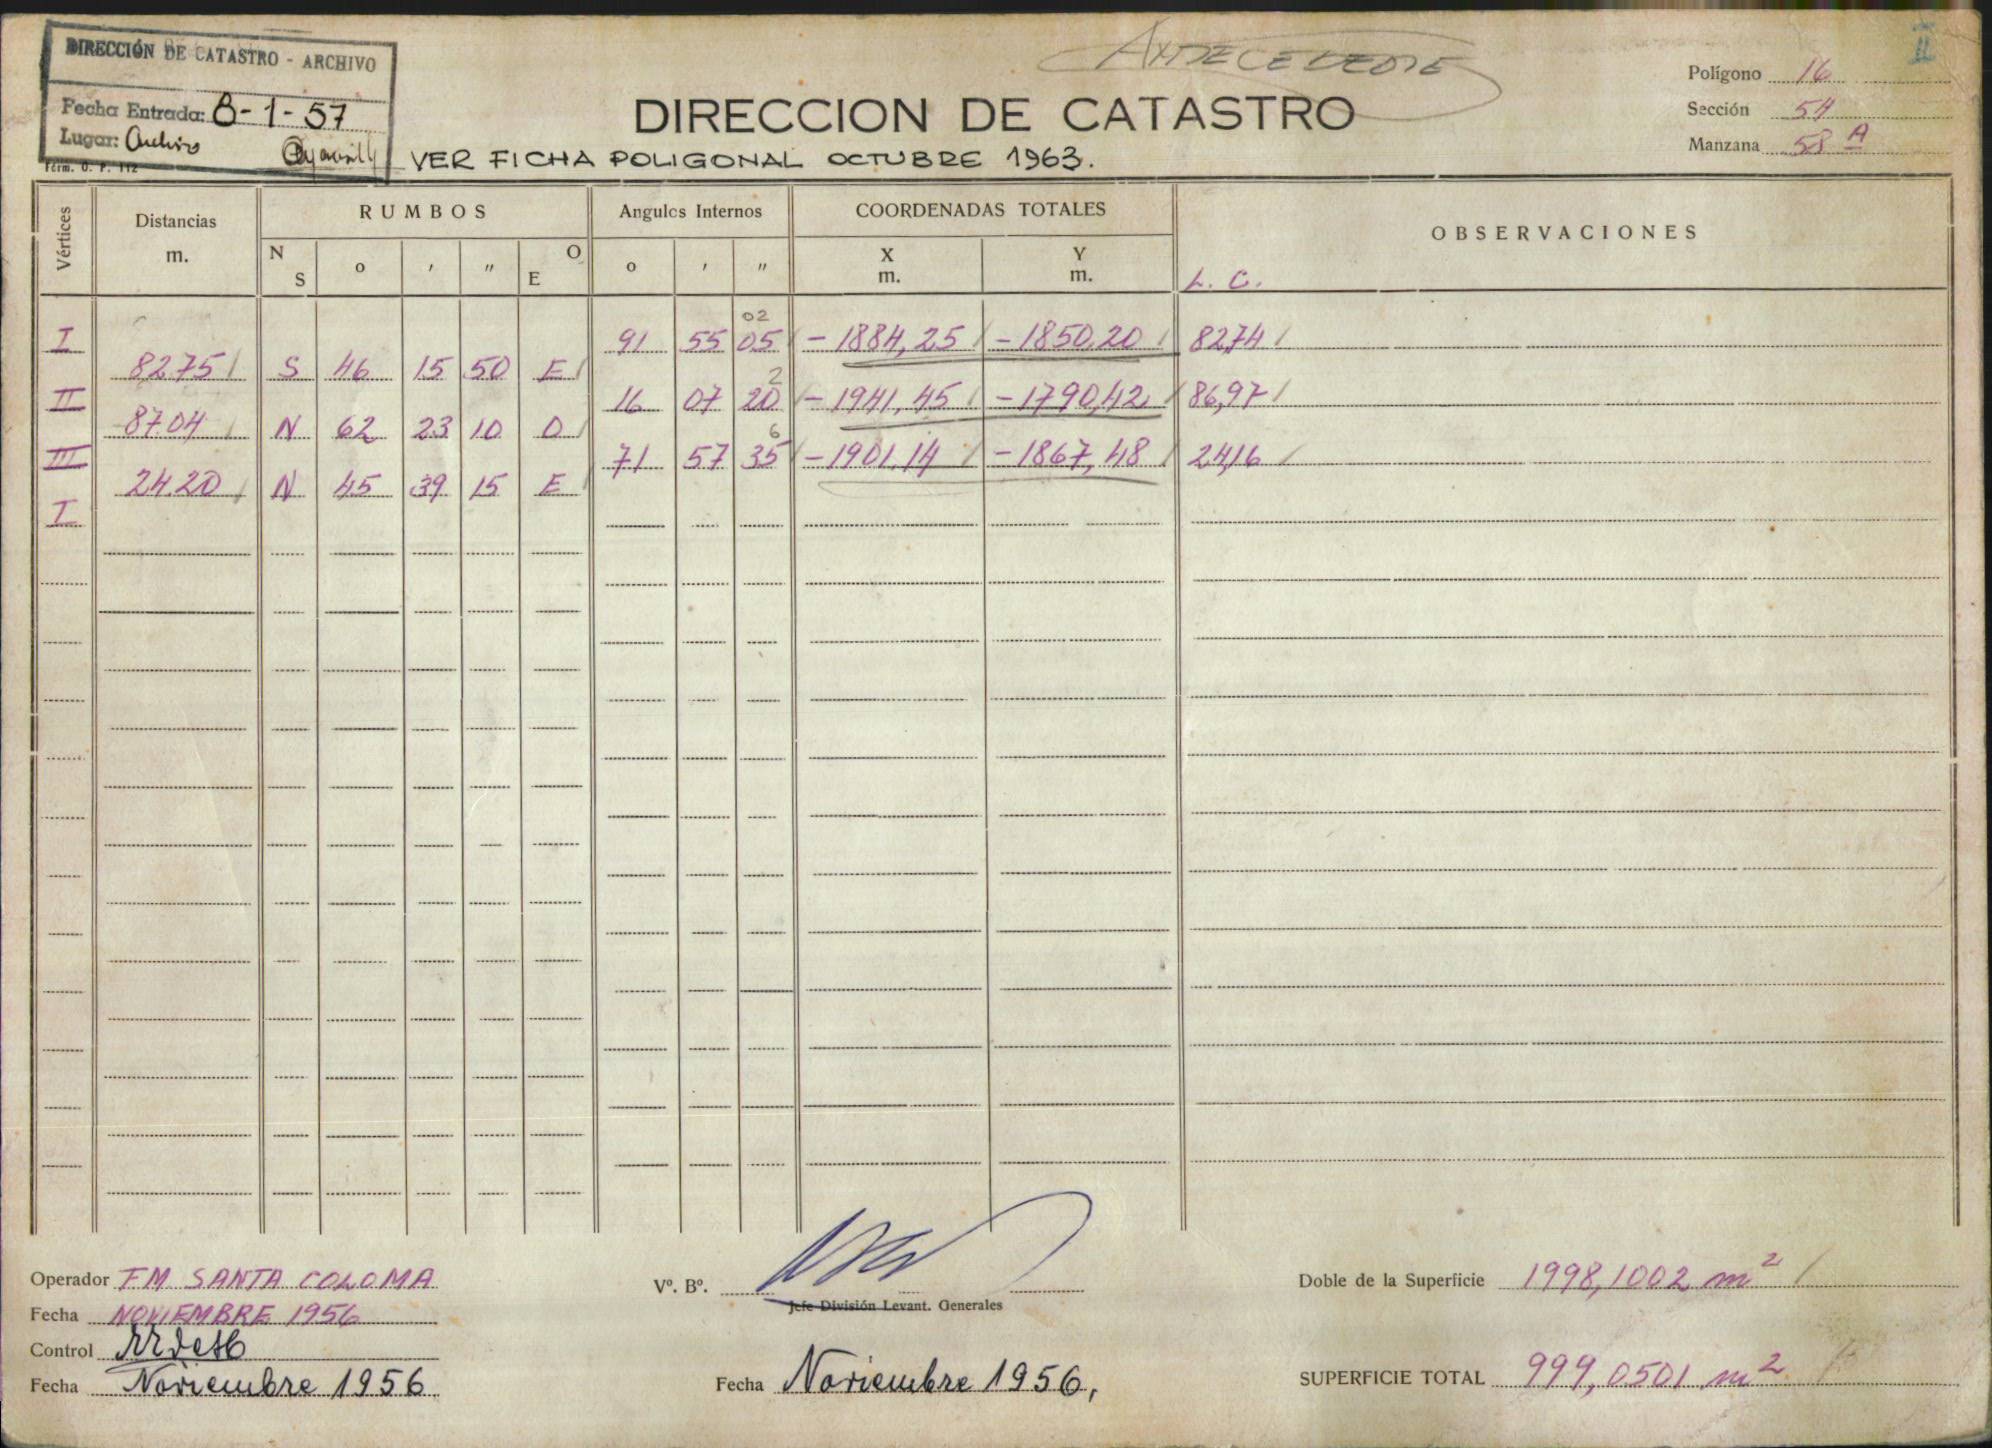 DIRECCIÓN DE CATASTRO - ARCHIVO
Fecha Entrada: 8-1-57
Lugar: Archivo
Form. O. P. 112
ANTECEDENTE
DIRECCION DE CATASTRO
VER FICHA POLIGONAL OCTUBRE 1963.
II
Polígono 16
Sección 54
Manzana 58 A
Vértices
Distancias m.
RUMBOS
N S o , ,, O E
Angulos Internos
o , ,,
COORDENADAS TOTALES
X m. Y m.
OBSERVACIONES
L. C.
02
I 91 55 05 - 1884,25 - 1850,20 82,74
82.75 S 46 15 50 E
2
II 16 07 20 - 1941,45 - 1790,42 86,97
87.04 N 62 23 10 O
6
III 71 57 35 - 1901,14 - 1867,48 24,16
24.20 N 45 39 15 E
I
Operador F M SANTA COLOMA
Fecha NOVIEMBRE 1956
Control
Fecha Noviembre 1956
Vº. Bº.
Jefe División Levant. Generales
Fecha Noviembre 1956,
Doble de la Superficie 1998,1002 m2
SUPERFICIE TOTAL 999,0501 m2